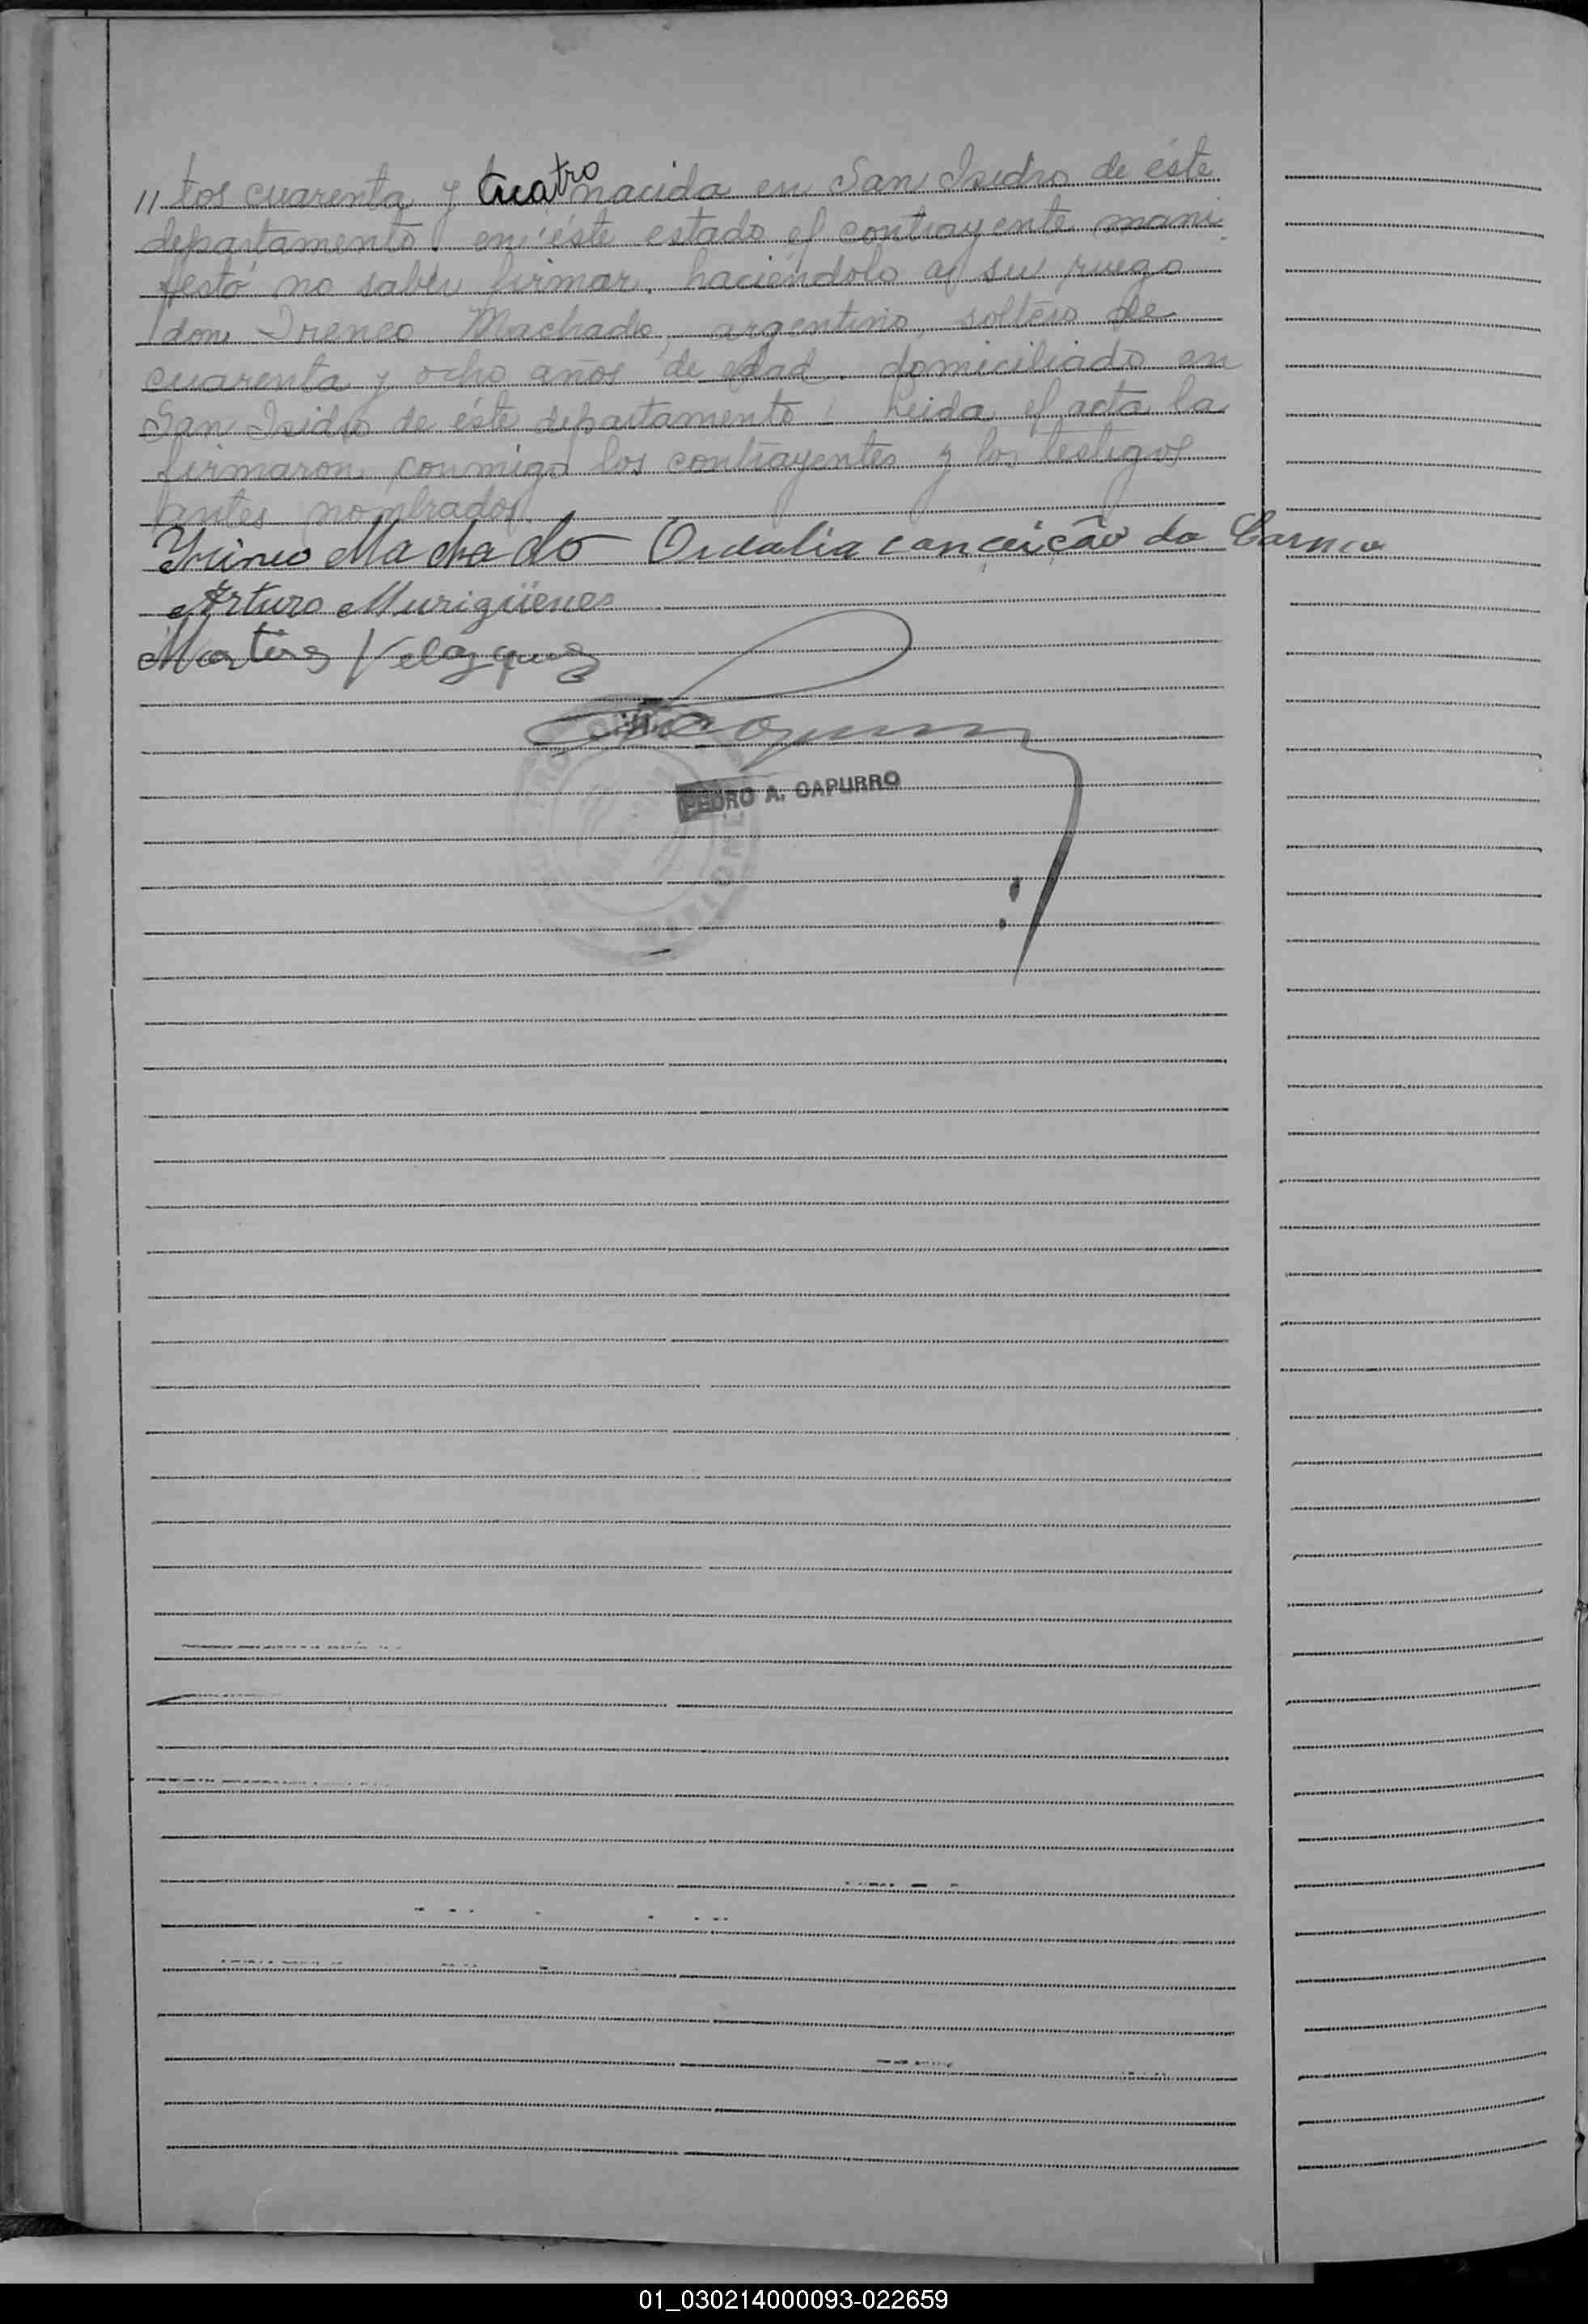 // tos cuarenta y cuatro nacida en San Isidro de éste
departamento. en éste estado el contrayente mani
festó no saber firmar. haciéndolo a su ruego
don Ireneo Machado, argentino, soltero de
cuarenta y ocho años de edad. domiciliado en
San Isidro de éste departamento. Leida el acta la
firmaron conmigo los contrayentes y los testigos
antes nombrados.
Irineo Machado Ordalia conçeição da
Arturo Murigüenes
Velazquez
PEDRO A. CAPURRO
01_030214000093-022659